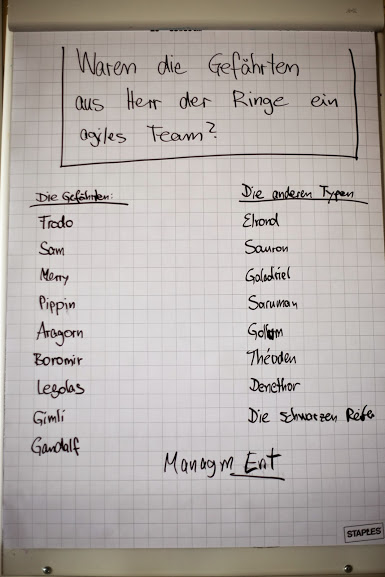 Waren die Gefährten
aus Herr der Ringe ein
agiles Team?
Die Gefährten:
Frodo
Sam
Merry
Pippin
Aragorn
Boromir
Legolas
Gimli
Gandalf
Die anderen Typen
Elrond
Sauron
Galadriel
Saruman
Gollum
Théoden
Denethor
Die schwarzen Reiter
Managm Ent
STAPLES